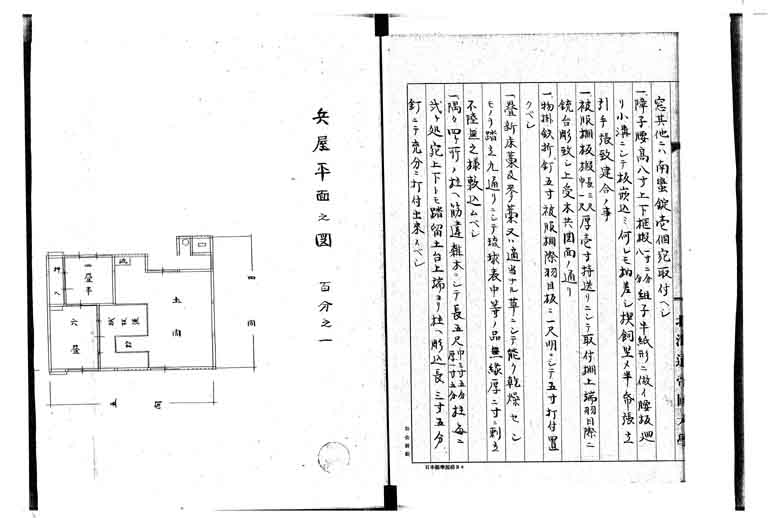 窓其他ニハ南蛮錠壱個宛取付ベシ
一、障子腰高八寸上下框椴二寸二分組子半紙形ニ倣イ腰板廻
リ小溝ニシテ板嵌込ミ何レモ柄差シ楔飼堅メ半帋張立
引手張致建合ノ事
一、被服棚板椴帳二尺巾一尺厚壱寸持送リニシテ取付棚上端羽目際ニ
銃台彫致シ上受木共図面ノ通リ
一、物掛鉄折釘五寸被服棚際羽目板ニ一尺明ニシテ五寸打付置
クベシ
一、畳新床藁及麥藁又ハ適当ナル草ニシテ能ク乾燥セシ
モノヲ踏立九通リニシテ琉球表中等ノ品無縁厚二寸ニ刺立
不陸無之様敷込ムベシ
一、隅々四ケ所ノ柱ヘ筋違雑木ニシテ長五尺巾三寸五分厚一寸五分柱毎ニ
弐ケ処宛上下トモ踏留土台上端ヨリ柱ヘ彫込長三寸五分
釘ニテ充分ニ打付出来スベシ
北海道帝國大學
兵屋平面之図 百分之一
四間
五間
土間
押入
二畳半
六畳
板
炉